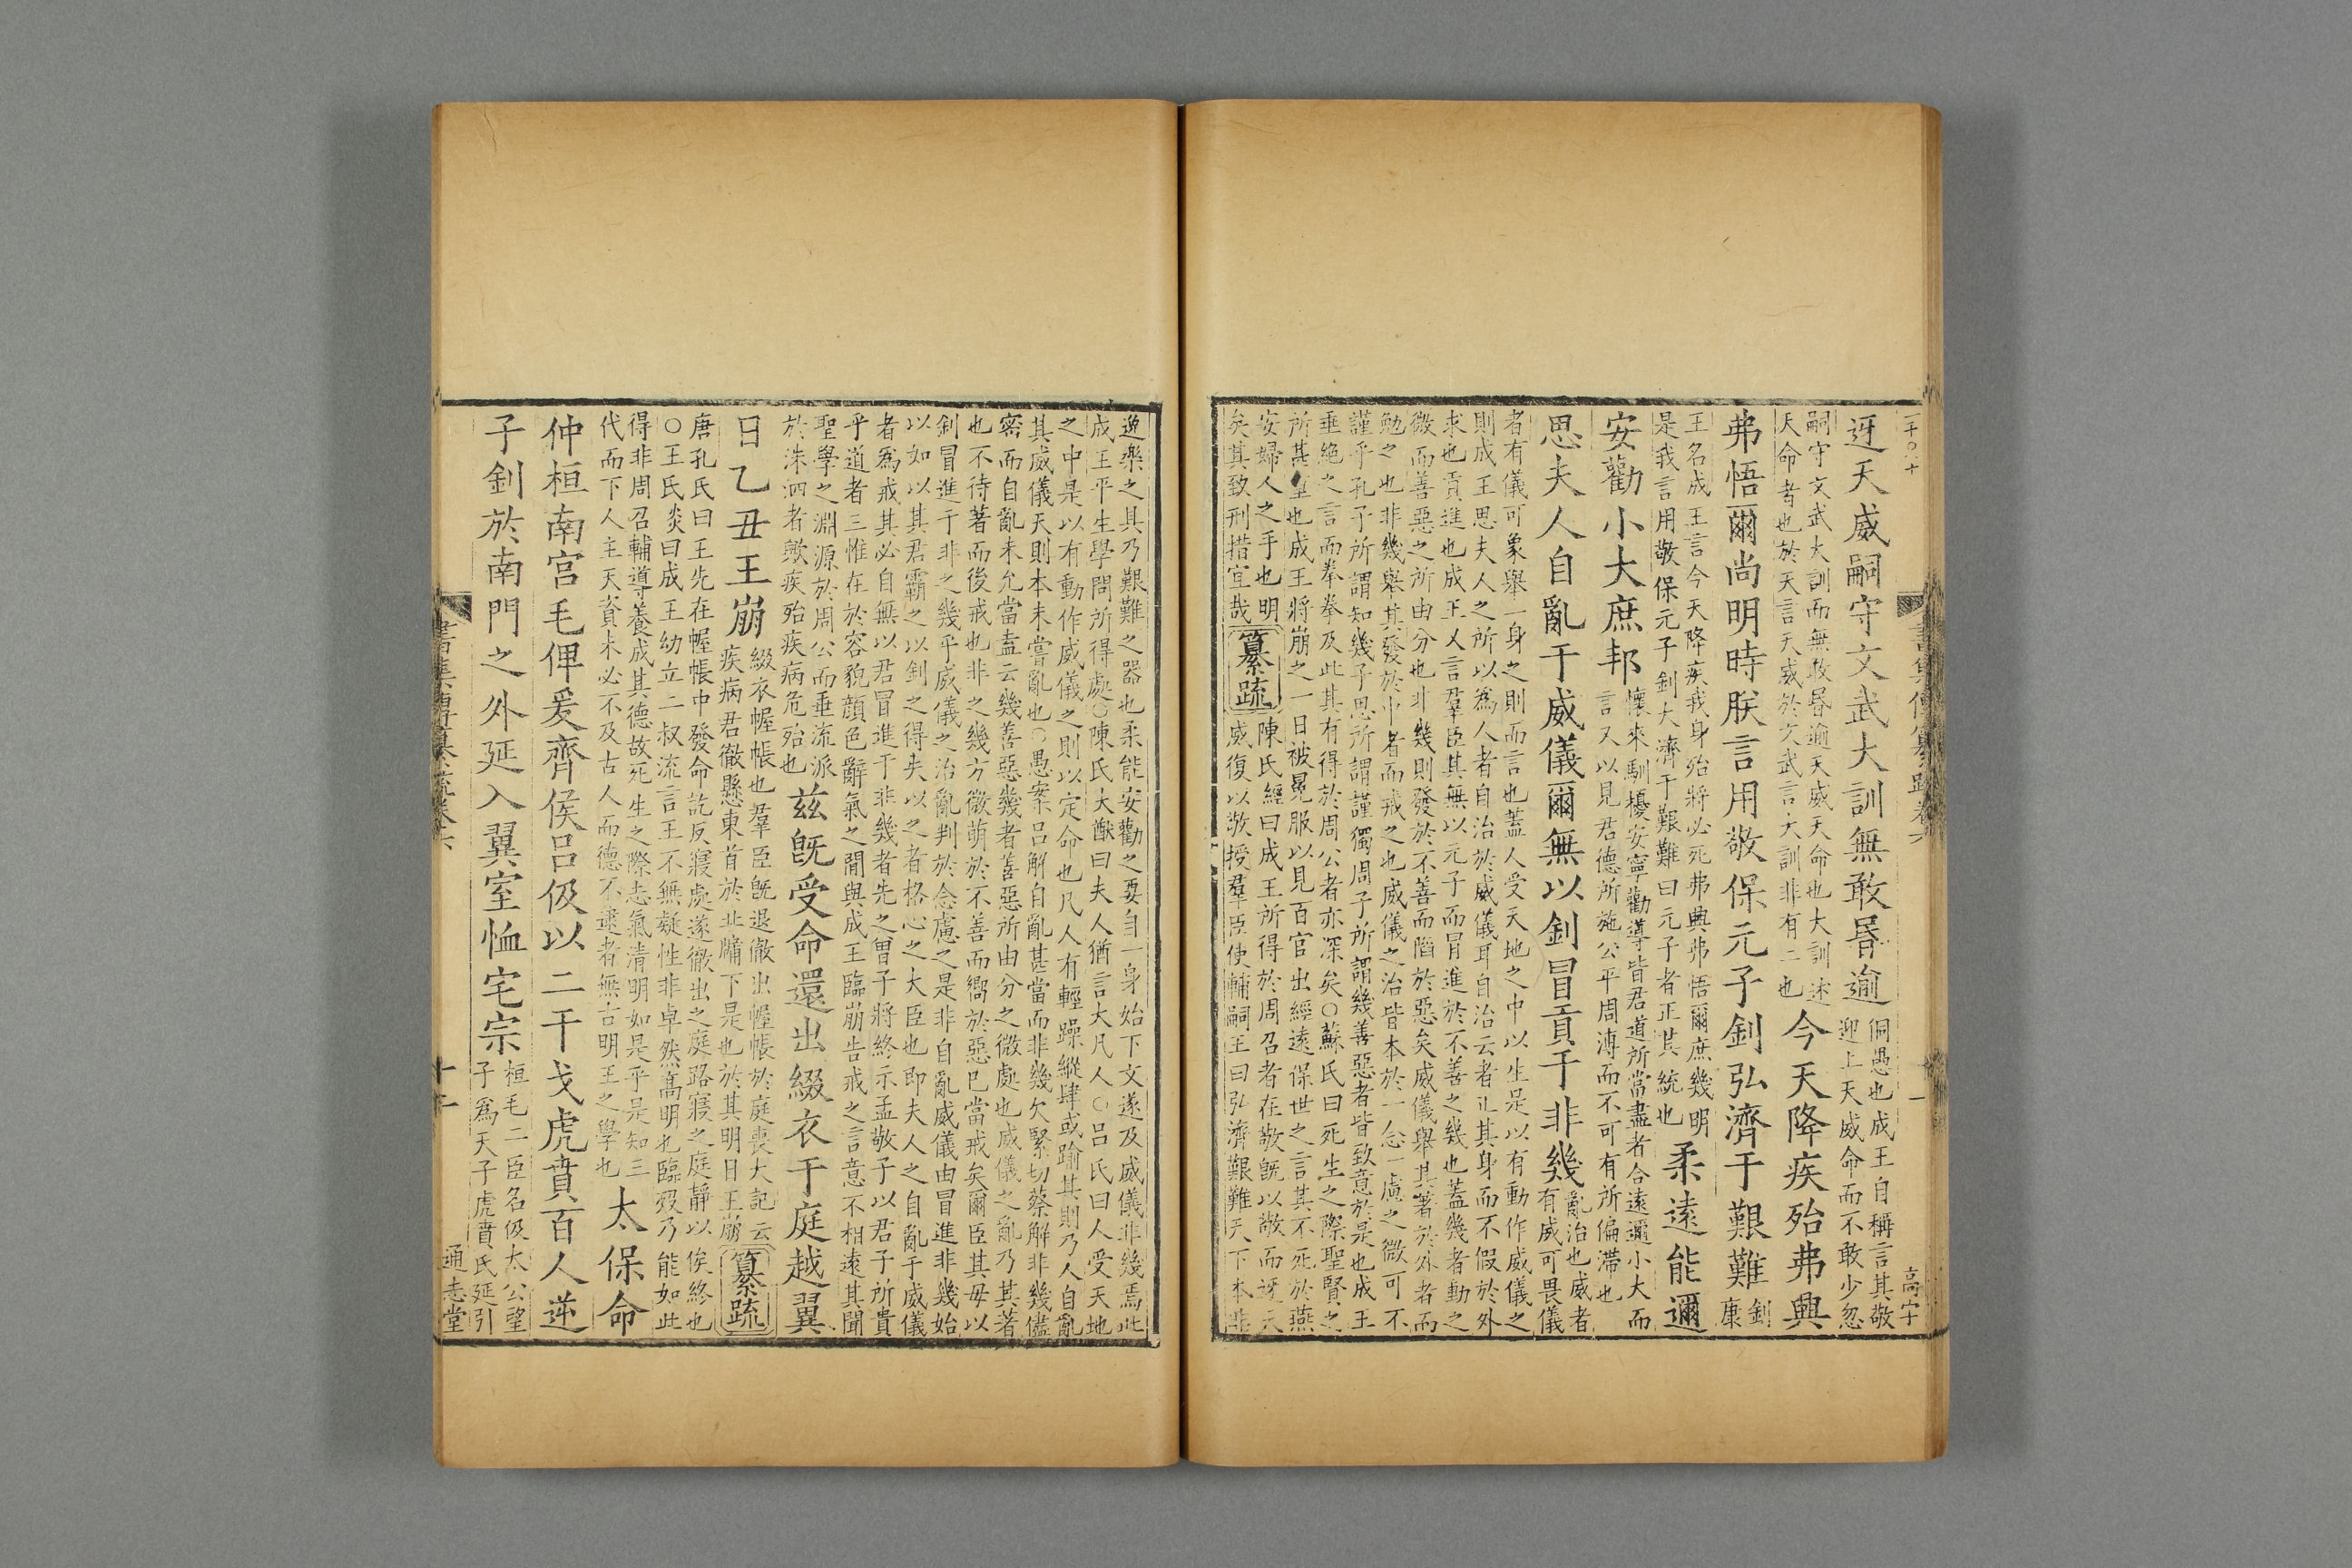 迓天威嗣守文武大訓無敢昬逾侗愚也成王自稱言其敬迎上天威命而不敢少忽
嗣守文武大訓而無敢昬逾天威天命也大訓述天命者也於天言天威於文武言大訓非有二也今天降疾殆弗興
弗悟爾尚明時朕言用敬保元子釗弘濟于艱難釗康
王名成王言今天降疾我身殆將必死弗興弗悟爾庶幾明是我言用敬保元子釗大濟于艱難曰元子者正其統也柔遠能邇
安勸小大庶邦懷來馴擾安寧勸導皆君道所當盡者合遠邇小大而言又以見君德所施公平周溥而不可有所偏滯也
思夫人自亂于威儀爾無以釗冒貢于非幾亂治也威者有威可畏儀
者有儀可象舉一身之則而言也蓋人受天地之中以生是以有動作威儀之
則成王思夫人之所以為人者自治於威儀耳自治云者正其身而不假於外
求也貢進也成王又言羣臣其無以元子而冒進於不善之幾也蓋幾者動之
微而善惡之所由分也非幾則發於不善而陷於惡矣威儀舉其著於外者而
勉之也非幾舉其發於中者而戒之也威儀之治皆本於一念一慮之微可不
謹乎孔子所謂知幾子思所謂謹獨周子所謂幾善惡者皆致意於是也成王
垂絶之言而拳拳及此其有得於周公者亦深矣○蘇氏曰死生之際聖賢之
所甚重也成王將崩之一日被冕服以見百官出經遠保世之言其不死於燕
安婦人之手也明矣其致刑措宜哉纂疏陳氏經曰成王所得於周召者在敬旣以敬而迓天
威復以敬授羣臣使輔嗣王曰弘濟艱難天下本非
逸樂之具乃艱難之器也柔能安勸之要自一身始下文遂及威儀非幾焉此
成王平生學問所得處○陳氏大猷曰夫人猶言大凡人○呂氏曰人受天地
之中是以有動作威儀之則以定命也凡人有輕躁縱肆或踰其則乃人自亂
其威儀天則本未嘗亂也○愚案呂解自亂甚當而非幾欠緊切蔡解非幾儘
密而自亂未允當盍云幾善惡幾者善惡所由分之微處也威儀之亂乃其著
也不待著而後戒也非之幾方微萌於不善而嚮於惡已當戒矣爾臣其毋以
釗冒進于非之幾乎威儀之治亂判於念慮之是非自亂威儀由冒進非幾始
以如以其君霸之以釗之得失以之者格心之大臣也即夫人之自亂于威儀
者為戒其必自無以君冒進于非幾者先之曾子將終示孟敬子以君子所貴
乎道者三惟在於容貌顔色辭氣之間與成王臨崩告戒之言意不相遠其聞
聖學之淵源於周公而垂流派於洙泗者歟疾殆疾病危殆也兹旣受命還出綴衣于庭越翼
日乙丑王崩綴衣幄帳也羣臣旣退徹出幄帳於庭喪大記云疾病君徹懸東首於北牖下是也於其明日王崩纂疏
唐孔氏曰王先在幄帳中發命訖反寢處遂徹出之庭路寢之庭靜以俟終也
○王氏炎曰成王幼立二叔流言王不無疑性非卓然高明也臨歿乃能如此
得非周召輔導養成其德故死生之際志氣清明如是乎是知三
代而下人主天資未必不及古人而德不逮者無古明王之學也太保命
仲桓南宫毛俾爰齊侯呂伋以二干戈虎賁百人逆
子釗於南門之外延入翼室恤宅宗桓毛二臣名伋太公望子為天子虎賁氏延引
書集傳纂疏卷六
十二
通志堂